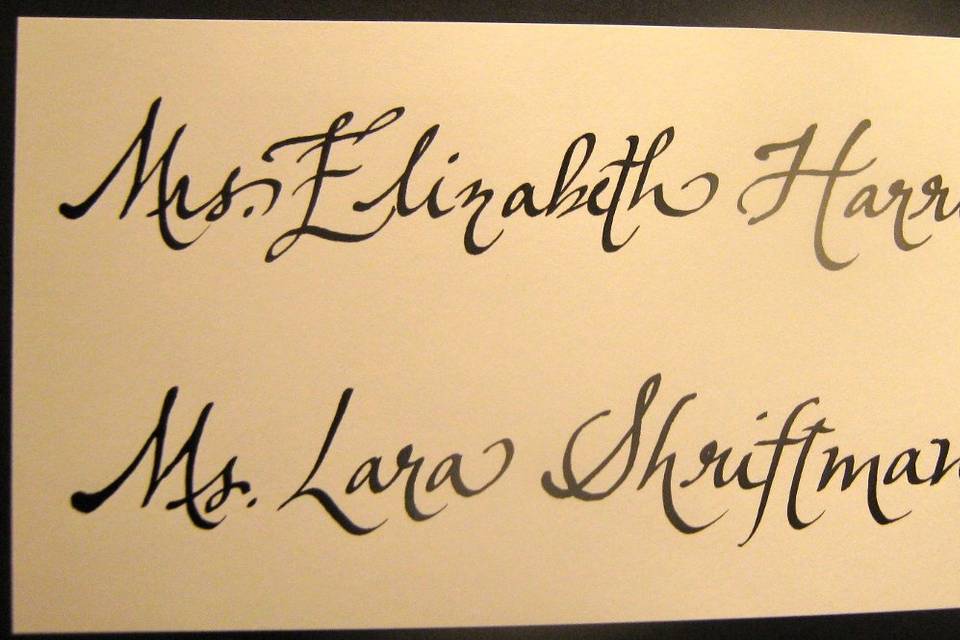 Mrs. Elizabeth Harr
Ms. Lara Shriftman